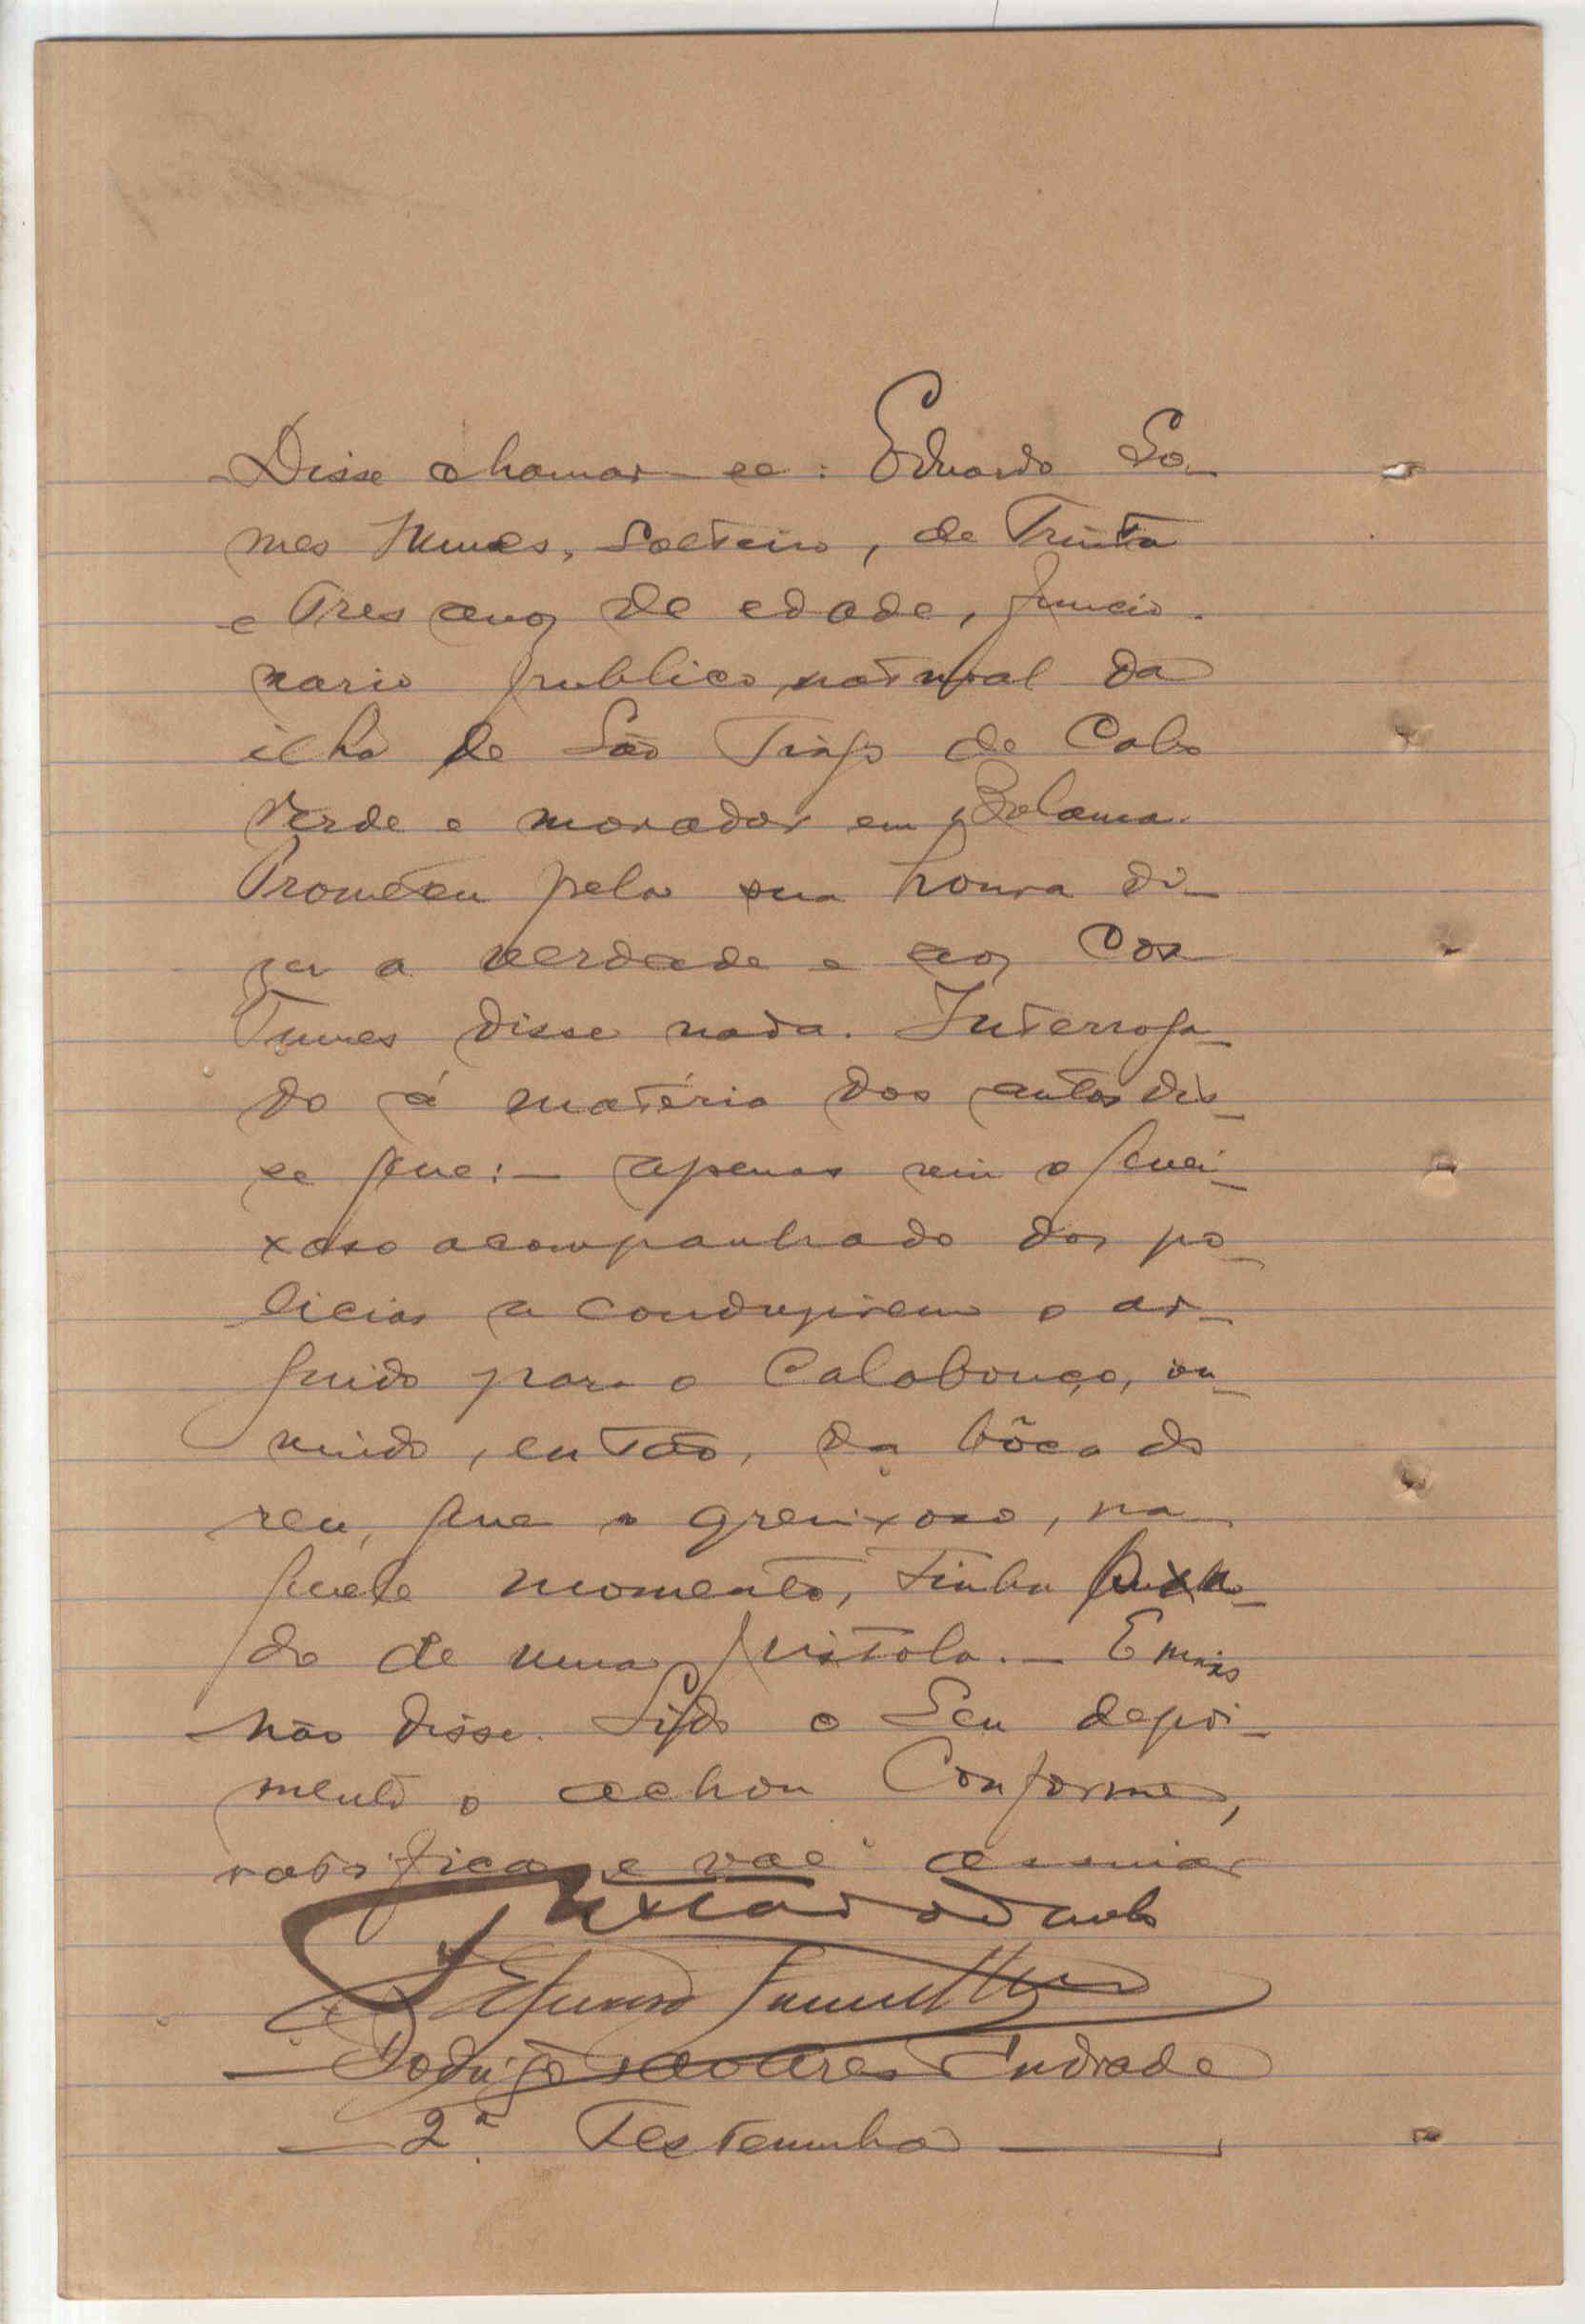 Disse chamar-se: Eduardo Go-
mes Nunes, solteiro, de Trinta
e Tres anos de edade, funcio-
nario publico natural da
ilha de São Tiago de Cabo
Verde e morador em Bolama.
Prometeu pela sua honra di-
zer a verdade e aos cos
tumes disse nada. Interroga-
do á matéria dos autos dis-
se que:- apenas viu o quei-
xoso acompanhado dos po-
licias a conduzirem o ar-
guido para o Calabouço, ou-
vindo, então, da bôca do
reu, que o queixoso, na-
quele momento, tinha puxa-
do de uma pistola. - E mais
não disse. Lido o seu depoi-
mento o achou conforme,
ratifica e vae assinar
Eduardo Gomes Nunes
Rodrigo Tavares Andrade
2ª Testemunha